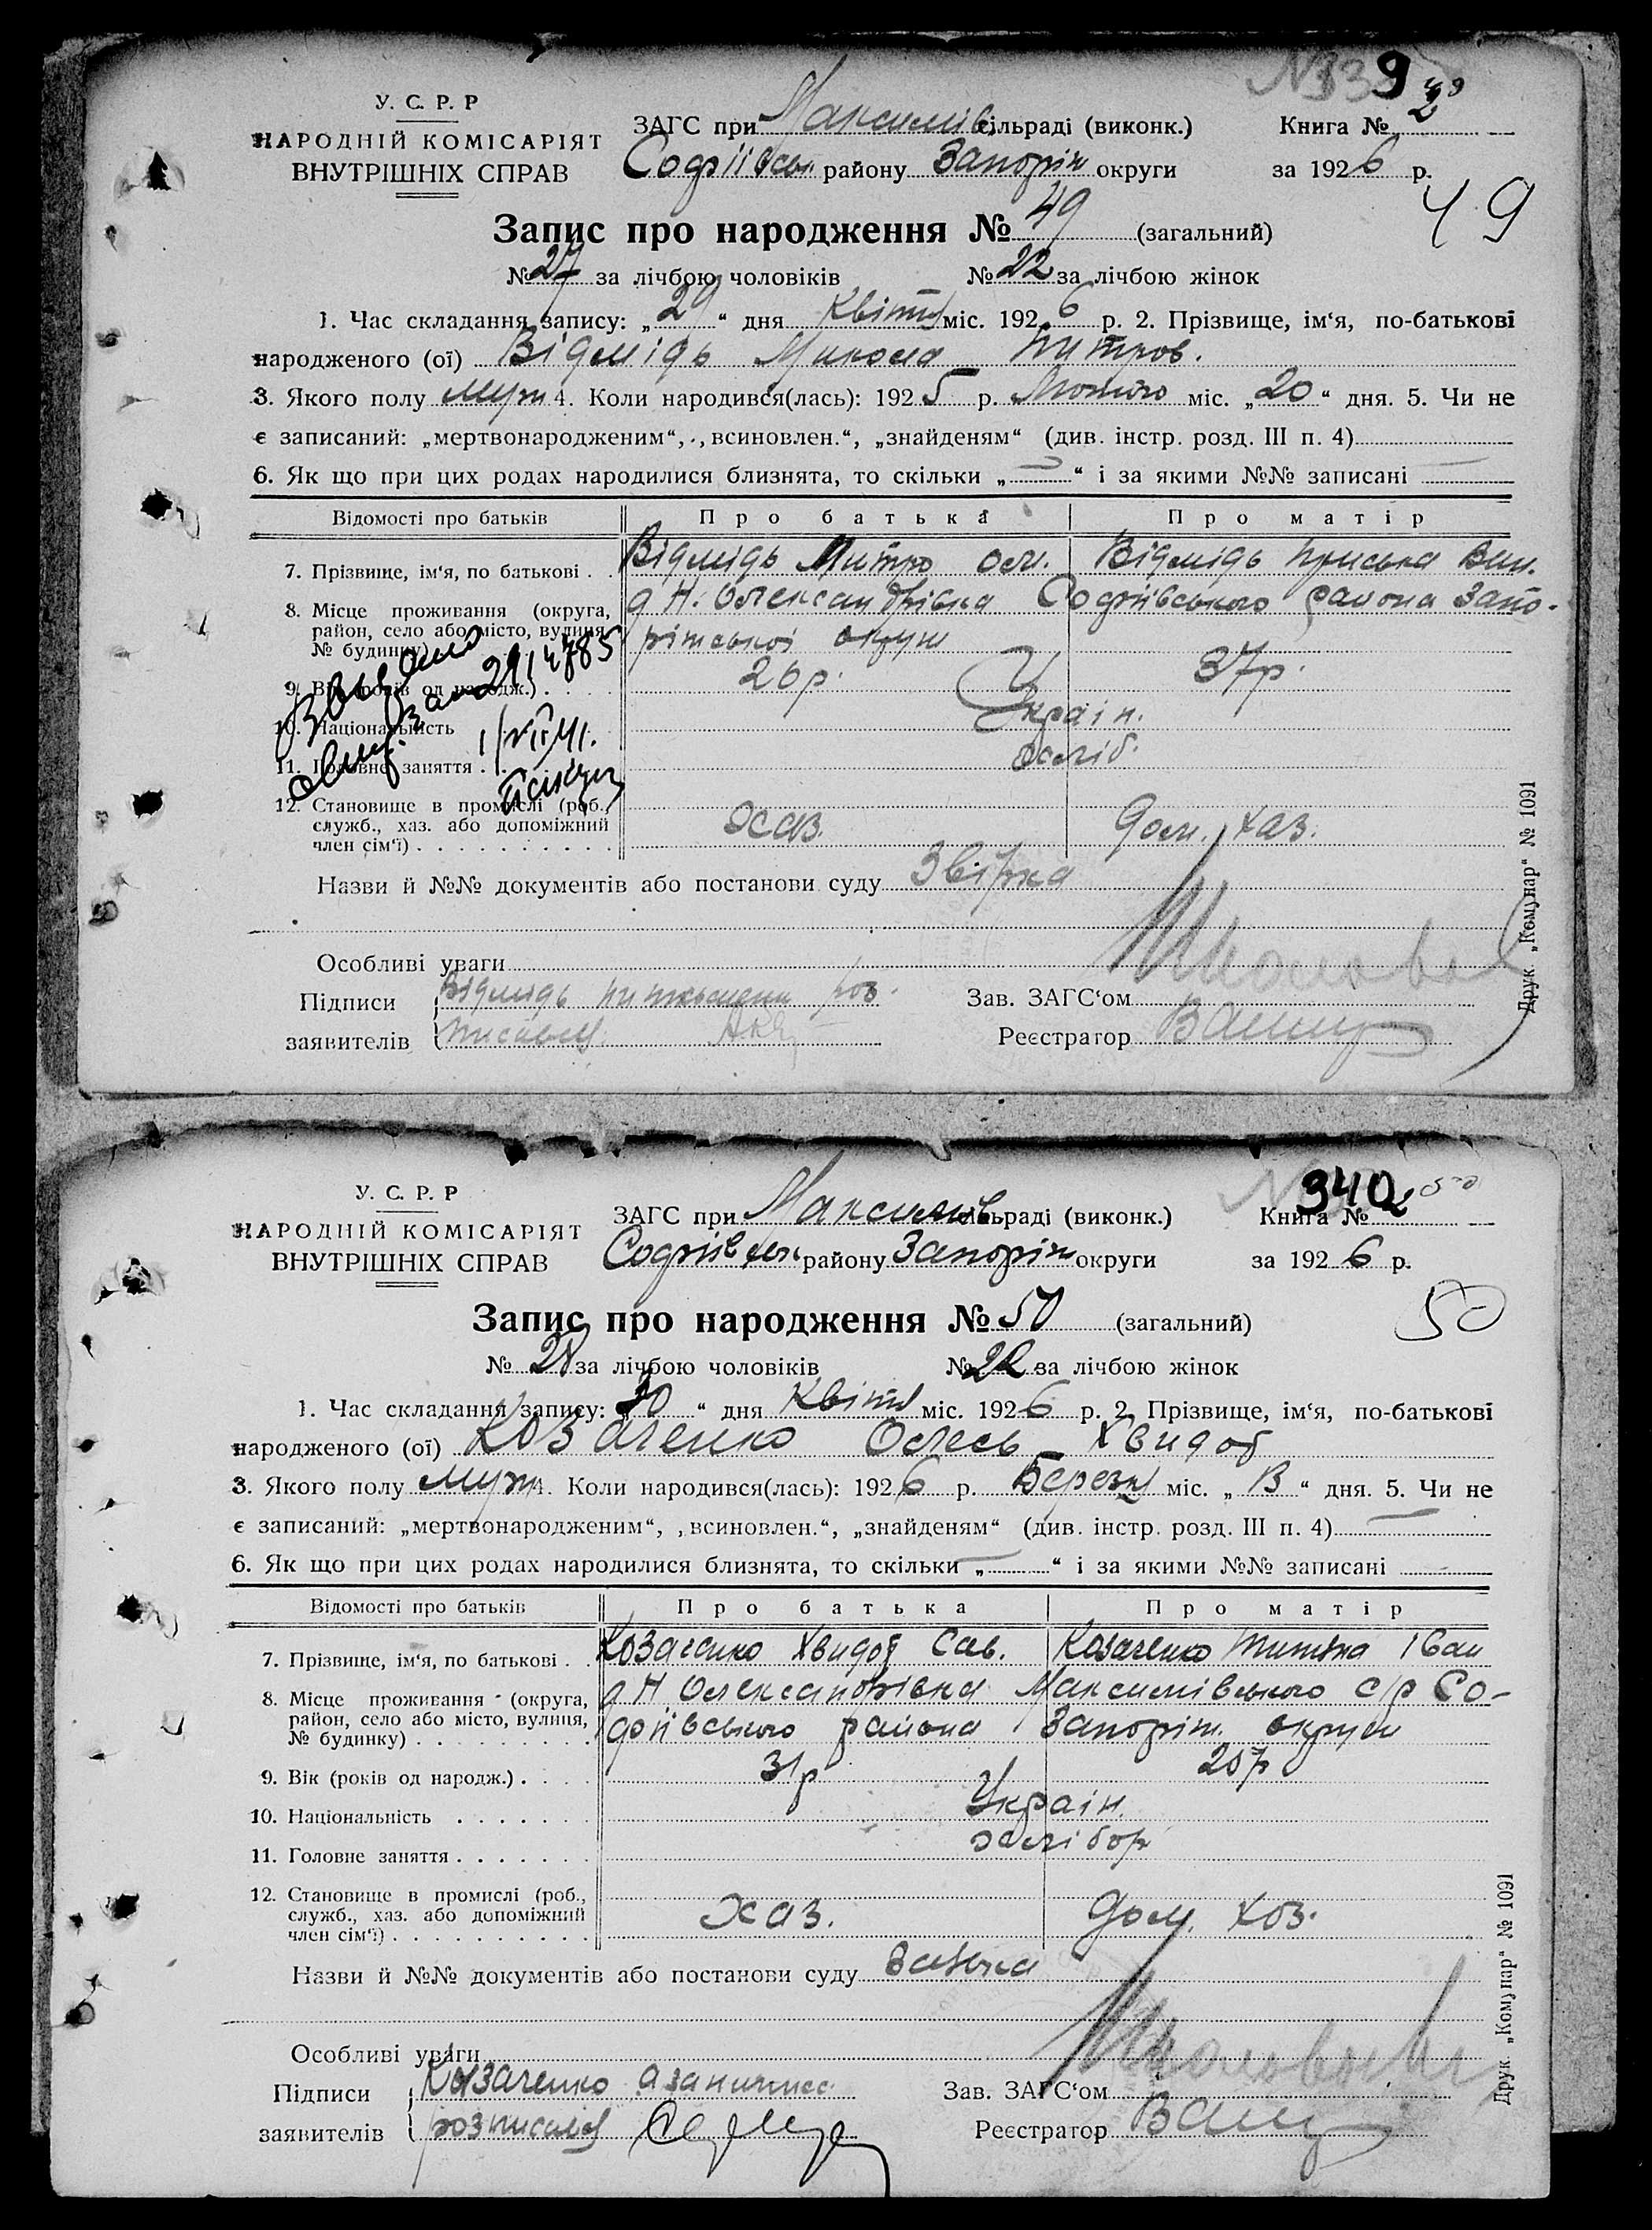 339
У. С. Р. Р
НАРОДНІЙ КОМІСАРІЯТ
ВНУТРІШНІХ СПРАВ
ЗАГС при Максимів сільраді (виконк.) Книга № 2
Софіївськ району Запоріж округи за 1926 р.
49
Запис про народження № 49 (загальний)
№ 27 за лічбою чоловіків № 22 за лічбою жінок
1. Час складання запису: „29“ дня Квітня міс. 1926 р. 2. Прізвище, ім‘я, по-батькові
народженого (ої) Відмідь Микола Митров.
3. Якого полу муж 4. Коли народився(лась): 1925 р. Лютого міс. „20“ дня. 5. Чи не
є записаний: „мертвонародженим“, „всиновлен.“, „знайденям“ (див. інстр. розд. III п. 4)
6. Як що при цих родах народилися близнята, то скільки „—“ і за якими №№ записані —
Відомості про батьків Про батька Про матір
7. Прізвище, ім‘я, по батькові . . Відмідь Митро Ом. Відмідь Приська
8. Місце проживання (округа, район, село або місто, вулиця, № будинку) д Н. Олександрівка Софіївського района Запо-
ріжської округи
9. Вік (років од народж.) . . . . 26р. 37р.
10. Національність Україн.
11. Головне заняття . . . хліб.
12. Становище в промислі (роб., служб., хаз. або допоміжний член сім‘ї) . . . . . . . . . . хаз. дом. хаз.
1/VII 41.
Назви й №№ документів або постанови суду
Особливі уваги
Підписи Відмідь
заявителів
Зав. ЗАГС‘ом
Реєстратор
Друк. „Комунар“ № 1091
340
50
У. С. Р. Р
НАРОДНІЙ КОМІСАРІЯТ
ВНУТРІШНІХ СПРАВ
ЗАГС при Максимів сільраді (виконк.) Книга № 2
Софіївськ району Запоріж округи за 1926 р.
50
Запис про народження № 50 (загальний)
№ 28 за лічбою чоловіків № 22 за лічбою жінок
1. Час складання запису: „30“ дня Квітня міс. 1926 р. 2. Прізвище, ім‘я, по-батькові
народженого (ої) Козаченко Олесь Хвидос
3. Якого полу муж 4. Коли народився(лась): 1926 р. Березня міс. „ “ дня. 5. Чи не
є записаний: „мертвонародженим“, „всиновлен.“, „знайденям“ (див. інстр. розд. III п. 4) —
6. Як що при цих родах народилися близнята, то скільки „—“ і за якими №№ записані
Відомості про батьків Про батька Про матір
7. Прізвище, ім‘я, по батькові . . Козаченко Хвидос Сав. Козаченко Титяна Іван
8. Місце проживання (округа, район, село або місто, вулиця, № будинку) . . . . . . . . . д Н Олександрівка Максимівського с/р Со-
фіївського района Запоріж. округи
9. Вік (років од народж.) . . . . 31р
10. Національність . . . . . . . Україн.
11. Головне заняття . . . . . . . хлібор
12. Становище в промислі (роб., служб., хаз. або допоміжний член сім‘ї) . . . . . . . . . . хаз. дом. хоз.
Назви й №№ документів або постанови суду
Особливі уваги
Підписи Козаченко
заявителів розписався
Зав. ЗАГС‘ом
Реєстратор
Друк. „Комунар“ № 1091